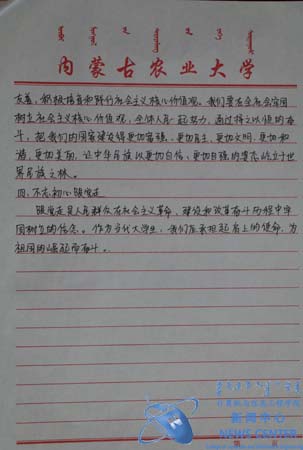 内蒙古农业大学
友善,积极培育和践行社会主义核心价值观。我们要在全社会牢固
树立社会主义核心价值观,全体人民一起努力,通过持之以恒的奋
斗,把我们的国家建设得更加富强、更加民主、更加文明、更加和
谐、更加美丽,让中华民族以更加自信、更加自强的姿态屹立于世
界民族之林。
四、不忘初心跟党走
跟党走是人民群众在社会主义革命、建设和改革奋斗历程中牢
固树立的信念。作为当代大学生,我们应承担起肩上的使命,为
祖国的崛起而奋斗。
计算机与信息工程学院
新闻中心
NEWS CENTER
第 页